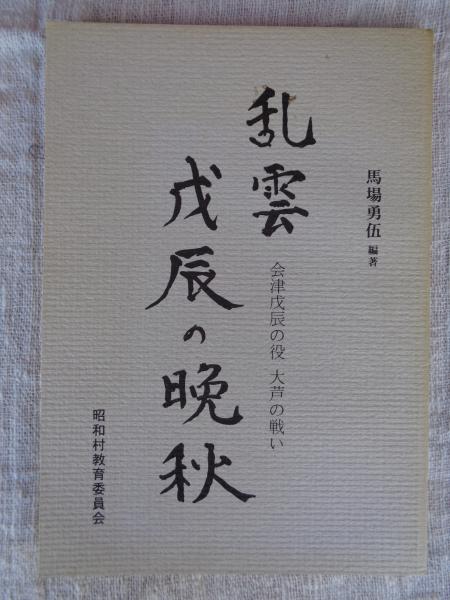 馬場勇伍 編著
乱雲
戊辰の晩秋
会津戊辰の役 大芦の戦い
昭和村教育委員会